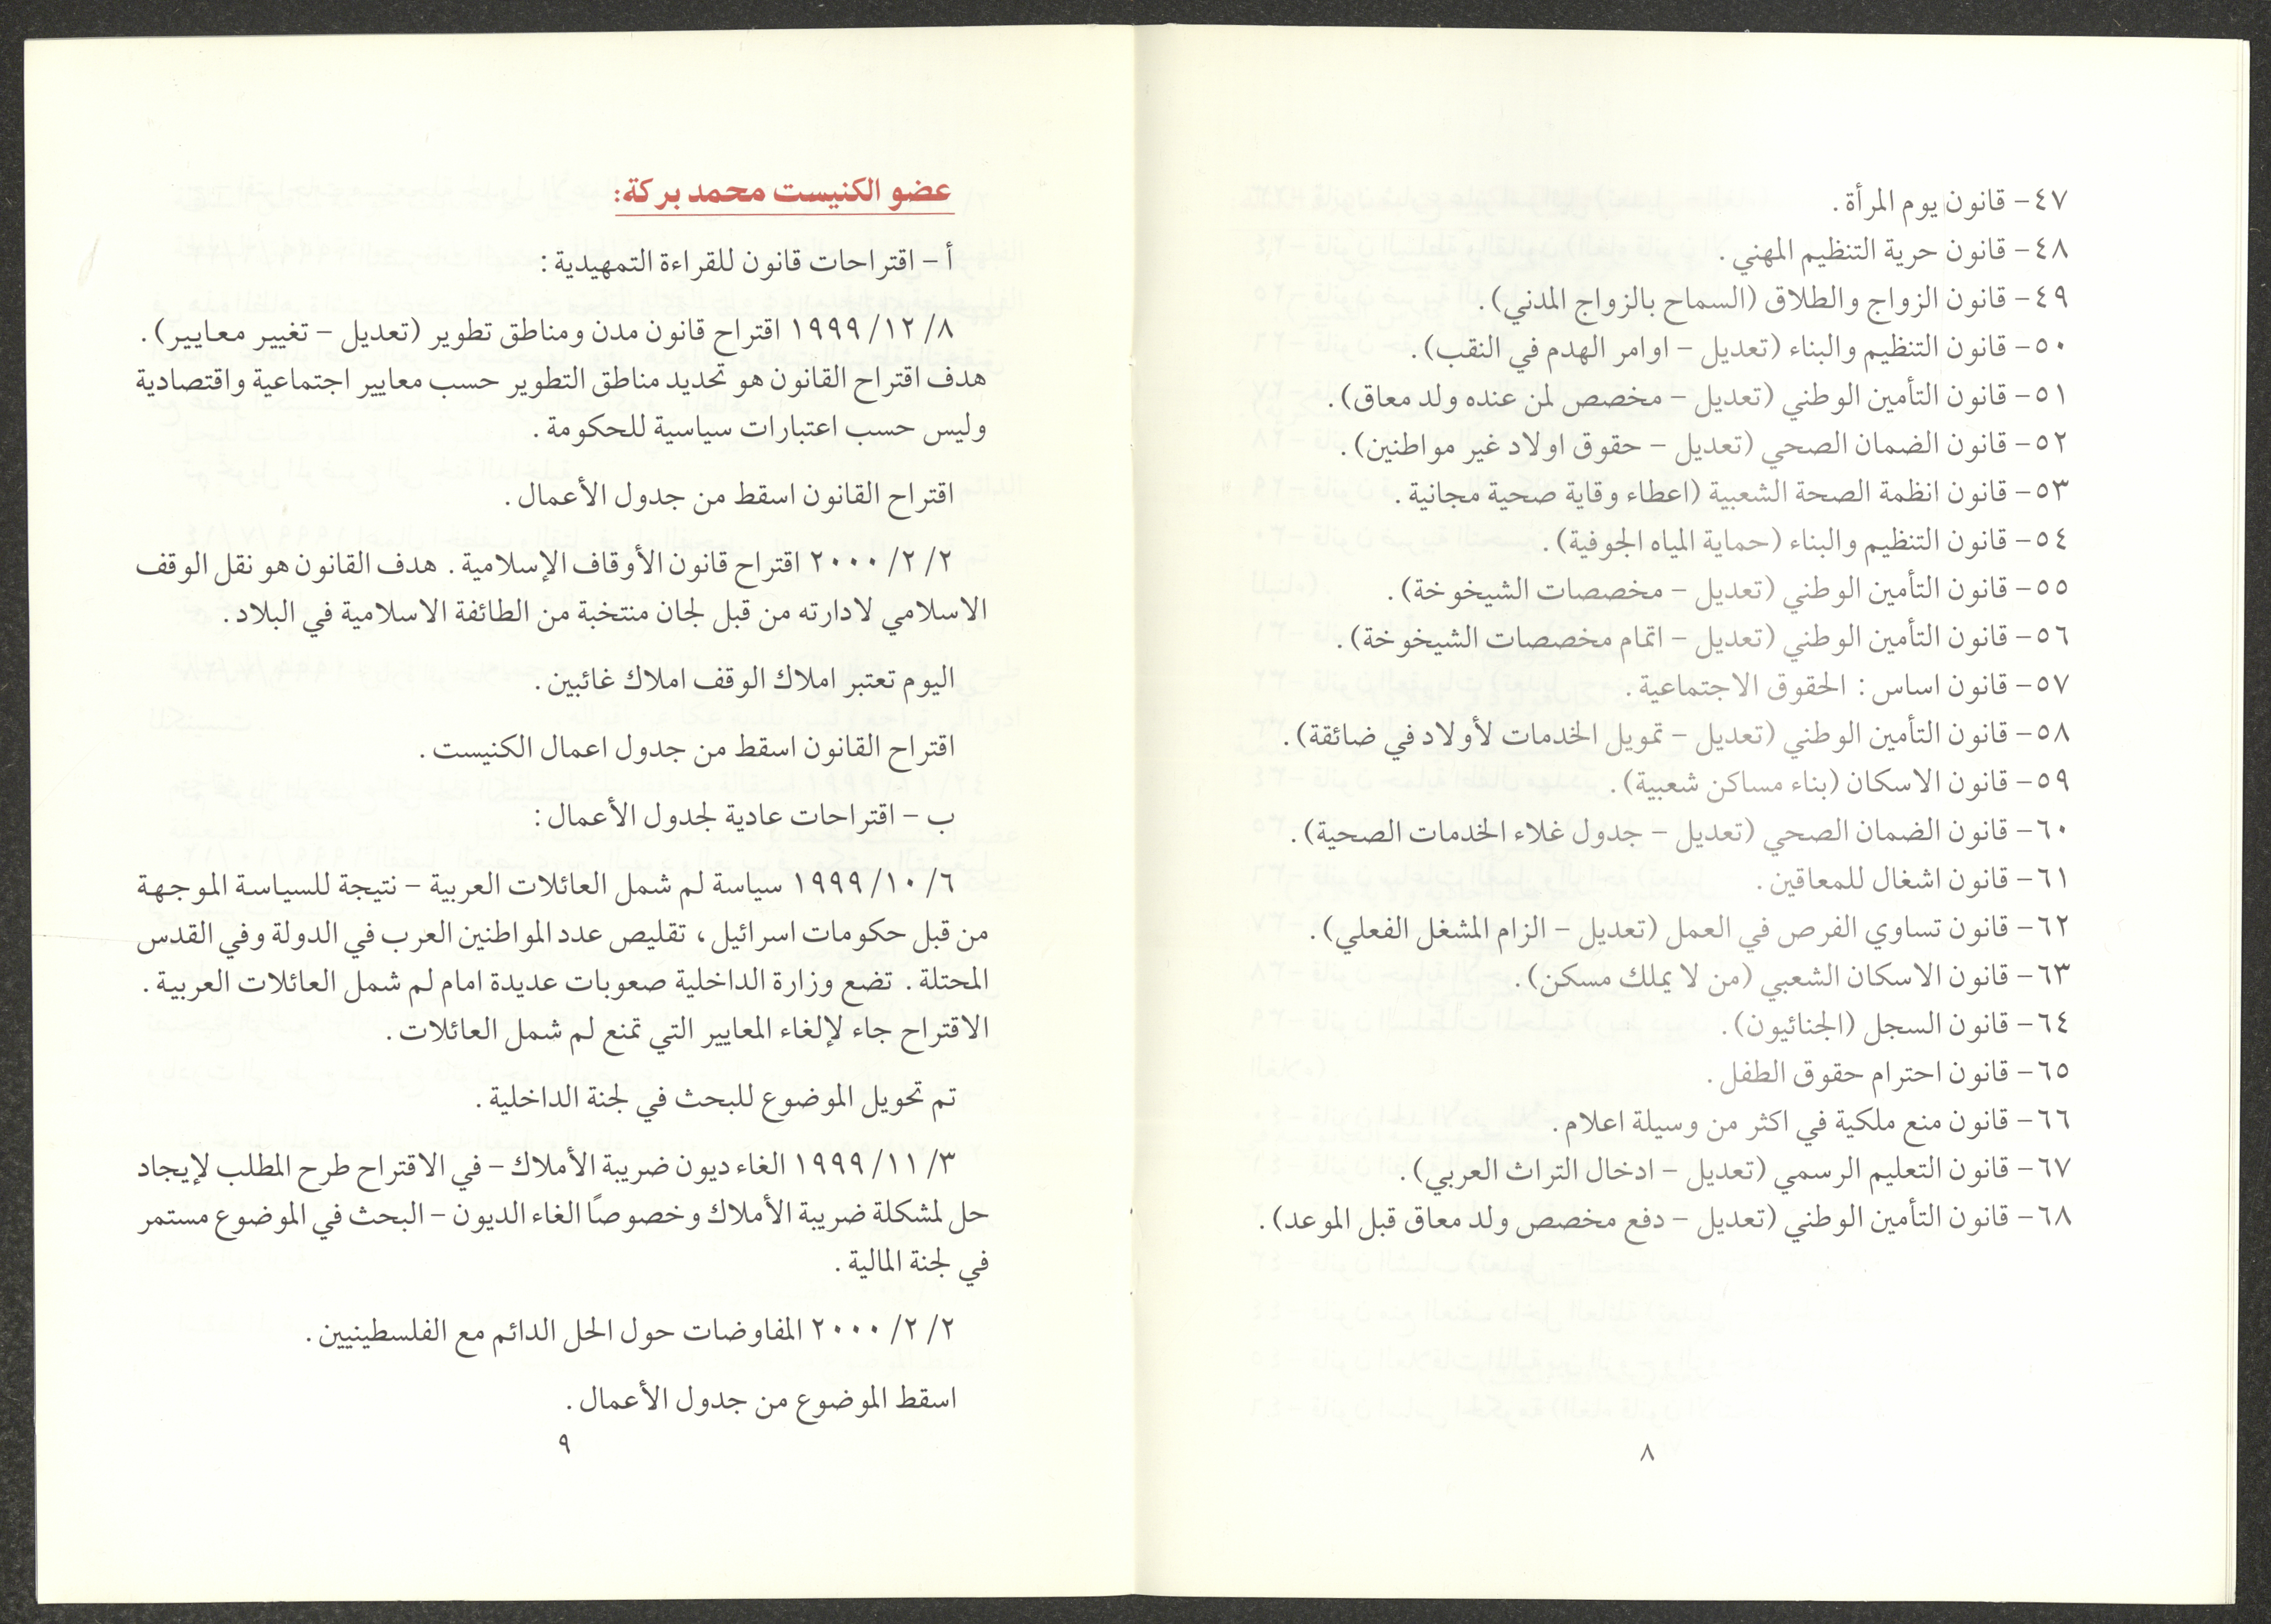 ٤٧- قانون يوم المرأة.
٤٨- قانون حرية التنظيم المهني.
٤٩- قانون الزواج والطلاق (السماح بالزواج المدني).
٥٠- قانون التنظيم والبناء (تعديل - اوامر الهدم في النقب).
٥١- قانون التأمين الوطني (تعديل - مخصص لمن عنده ولد معاق).
٥٢- قانون الضمان الصحي (تعديل - حقوق اولاد غير مواطنين).
٥٣- قانون انظمة الصحة الشعبية (اعطاء وقاية صحية مجانية.
٥٤- قانون التنظيم والبناء (حماية المياه الجوفية).
٥٥- قانون التأمين الوطني (تعديل - مخصصات الشيخوخة).
٥٦- قانون التأمين الوطني (تعديل - اتمام مخصصات الشيخوخة).
٥٧- قانون اساس: الحقوق الاجتماعية.
٥٨- قانون التأمين الوطني (تعديل - تمويل الخدمات لأولاد في ضائقة).
٥٩- قانون الاسكان (بناء مساكن شعبية).
٦٠- قانون الضمان الصحي (تعديل - جدول غلاء الخدمات الصحية).
٦١- قانون اشغال للمعاقين.
٦٢- قانون تساوي الفرص في العمل (تعديل - الزام المشغل الفعلي).
٦٣- قانون الاسكان الشعبي (من لا يملك مسكن).
٦٤- قانون السجل (الجنائيون).
٦٥- قانون احترام حقوق الطفل.
٦٦- قانون منع ملكية في اكثر من وسيلة اعلام.
٦٧- قانون التعليم الرسمي (تعديل - ادخال التراث العربي).
٦٨- قانون التأمين الوطني (تعديل - دفع مخصص ولد معاق قبل الموعد).
٨
عضو الكنيست محمد بركة:
أ - اقتراحات قانون للقراءة التمهيدية:
٨/ ١٢/ ١٩٩٩ اقتراح قانون مدن ومناطق تطوير (تعديل - تغيير معايير).
هدف اقتراح القانون هو تحديد مناطق التطوير حسب معايير اجتماعية واقتصادية
وليس حسب اعتبارات سياسية للحكومة.
اقتراح القانون اسقط من جدول الأعمال.
٢/ ٢/ ٢٠٠٠ اقتراح قانون الأوقاف الإسلامية. هدف القانون هو نقل الوقف
الاسلامي لادارته من قبل لجان منتخبة من الطائفة الاسلامية في البلاد.
اليوم تعتبر املاك الوقف املاك غائبين.
اقتراح القانون اسقط من جدول اعمال الكنيست.
ب - اقتراحات عادية لجدول الأعمال:
٦/ ١٠/ ١٩٩٩ سياسة لم شمل العائلات العربية - نتيجة للسياسة الموجهة
من قبل حكومات اسرائيل، تقليص عدد المواطنين العرب في الدولة وفي القدس
المحتلة. تضع وزارة الداخلية صعوبات عديدة امام لم شمل العائلات العربية.
الاقتراح جاء لإلغاء المعايير التي تمنع لم شمل العائلات.
تم تحويل الموضوع للبحث في لجنة الداخلية.
٣/ ١١/ ١٩٩٩ الغاء ديون ضريبة الأملاك - في الاقتراح طرح المطلب لإيجاد
حل لمشكلة ضريبة الأملاك وخصوصًا الغاء الديون - البحث في الموضوع مستمر
في لجنة المالية.
٢/ ٢/ ٢٠٠٠ المفاوضات حول الحل الدائم مع الفلسطينيين.
اسقط الموضوع من جدول الأعمال.
٩